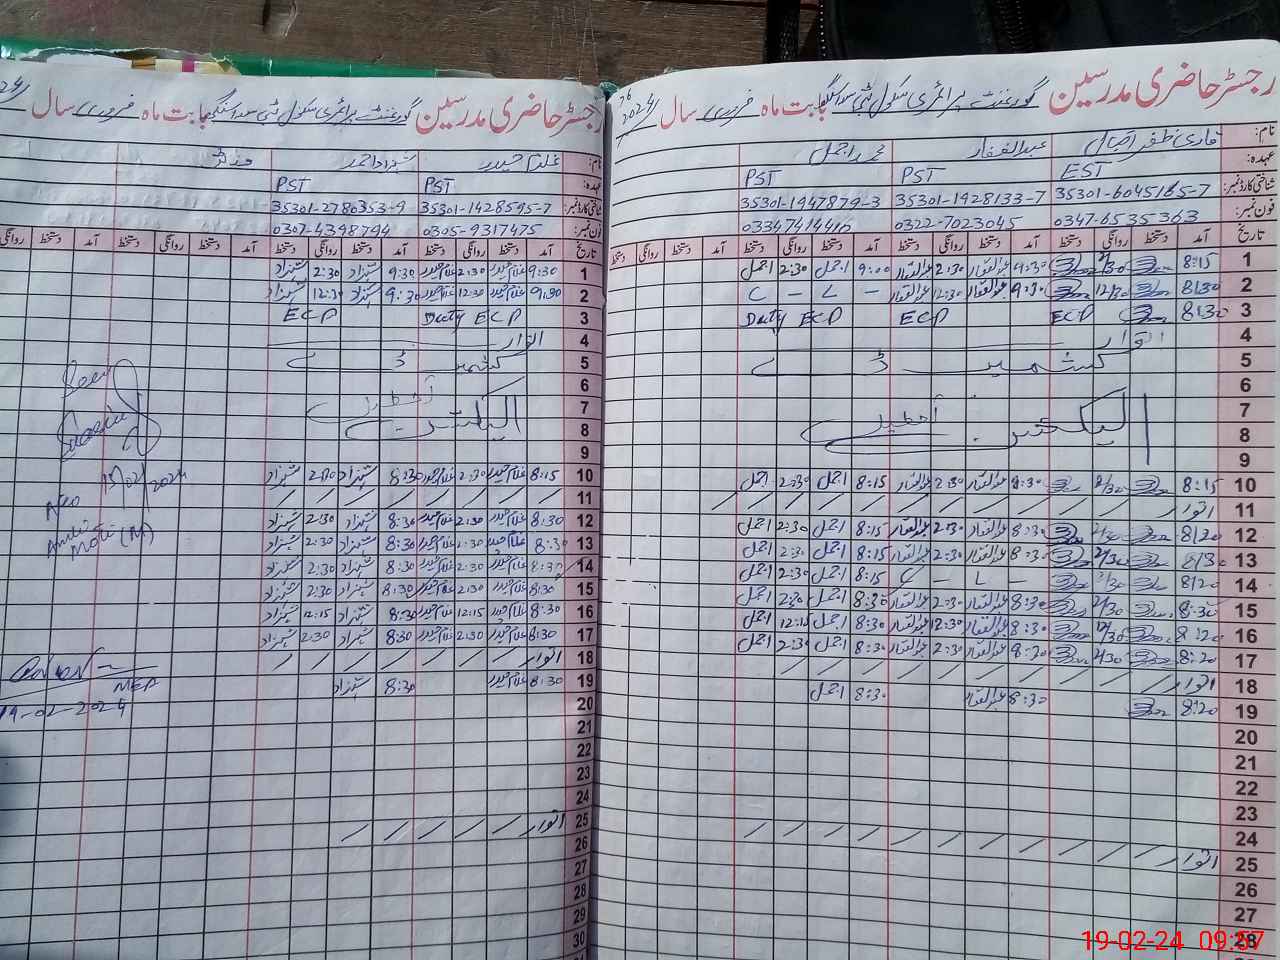 رجسٹر حاضری مدرسین گورنمنٹ پرائمری سکول بابت ماہ فروری سال 2024
نام: قاری ظفر اقبال عبدالغفار محمد اجمل
عہدہ: EST PST PST
شناختی کارڈ نمبر: 35301-6045165-7 35301-1928133-7 35301-1947879-3
فون نمبر: 0347-6535363 0322-7023045
تاریخ آمد دستخط روانگی دستخط آمد دستخط روانگی دستخط آمد دستخط روانگی دستخط آمد دستخط روانگی دستخط
1 8:15 2/30 9:30 عبدالغفار 2:30 عبدالغفار 9:00 اجمل 2:30 اجمل
2 8:30 12/30 9:30 عبدالغفار 12:30 عبدالغفار - L - C
3 8:30 ECP ECP Duty ECP
4 اتوار
5 کشمیر ڈے
6
7 الیکشن تعطیل
8
9
10 8:15 2/30 8:30 عبدالغفار 2:30 عبدالغفار 8:15 اجمل 2:30 اجمل
11 اتوار
12 8:20 2/30 8:30 عبدالغفار 2:30 عبدالغفار 8:15 اجمل 2:30 اجمل
13 8:30 2/30 8:30 عبدالغفار 2:30 عبدالغفار 8:15 اجمل 2:30 اجمل
14 8:20 2/30 - L - C 8:15 اجمل 2:30 اجمل
15 8:30 2/30 8:30 عبدالغفار 2:30 عبدالغفار 8:30 اجمل 2:30 اجمل
16 8:20 12/30 8:30 عبدالغفار 12:30 عبدالغفار 8:30 اجمل 12:15 اجمل
17 8:20 2/30 8:30 عبدالغفار 2:30 عبدالغفار 8:30 اجمل 2:30 اجمل
18 اتوار
19 8:20 8:30 عبدالغفار 8:30 اجمل
20
21
22
23
24
25 اتوار
26
27
28
رجسٹر حاضری مدرسین گورنمنٹ پرائمری سکول بابت ماہ فروری سال
نام: غلام حیدر شہزاد احمد
عہدہ: PST PST
شناختی کارڈ نمبر: 35301-1428595-7 35301-2780353-9
فون نمبر: 0305-9317475 0307-4398794
تاریخ آمد دستخط روانگی دستخط آمد دستخط روانگی دستخط آمد دستخط روانگی دستخط آمد دستخط روانگی
1 9:30 غلام حیدر 2:30 غلام حیدر 9:30 شہزاد 2:30 شہزاد
2 9:30 غلام حیدر 12:30 غلام حیدر 9:30 شہزاد 12:30 شہزاد
3 Duty ECP ECP
4 اتوار
5 کشمیر ڈے
6
7 الیکشن تعطیل
8
9
10 8:15 غلام حیدر 2:30 غلام حیدر 8:30 شہزاد 2:30 شہزاد
11
12 8:30 غلام حیدر 2:30 غلام حیدر 8:30 شہزاد 2:30 شہزاد
13 8:30 غلام حیدر 2:30 غلام حیدر 8:30 شہزاد 2:30 شہزاد
14 8:30 غلام حیدر 2:30 غلام حیدر 8:30 شہزاد 2:30 شہزاد
15 8:30 غلام حیدر 2:30 غلام حیدر 8:30 شہزاد 2:30 شہزاد
16 8:30 غلام حیدر 12:15 غلام حیدر 8:30 شہزاد 12:15 شہزاد
17 8:30 غلام حیدر 2:30 غلام حیدر 8:30 شہزاد 2:30 شہزاد
18 اتوار
19 8:30 غلام حیدر 8:30 شہزاد
20
21
22
23
24
25 اتوار
26
27
28
29
30
Seen
13/02/2024
AEO
(M)
MEA
19-02-2024
19-02-24 09:57